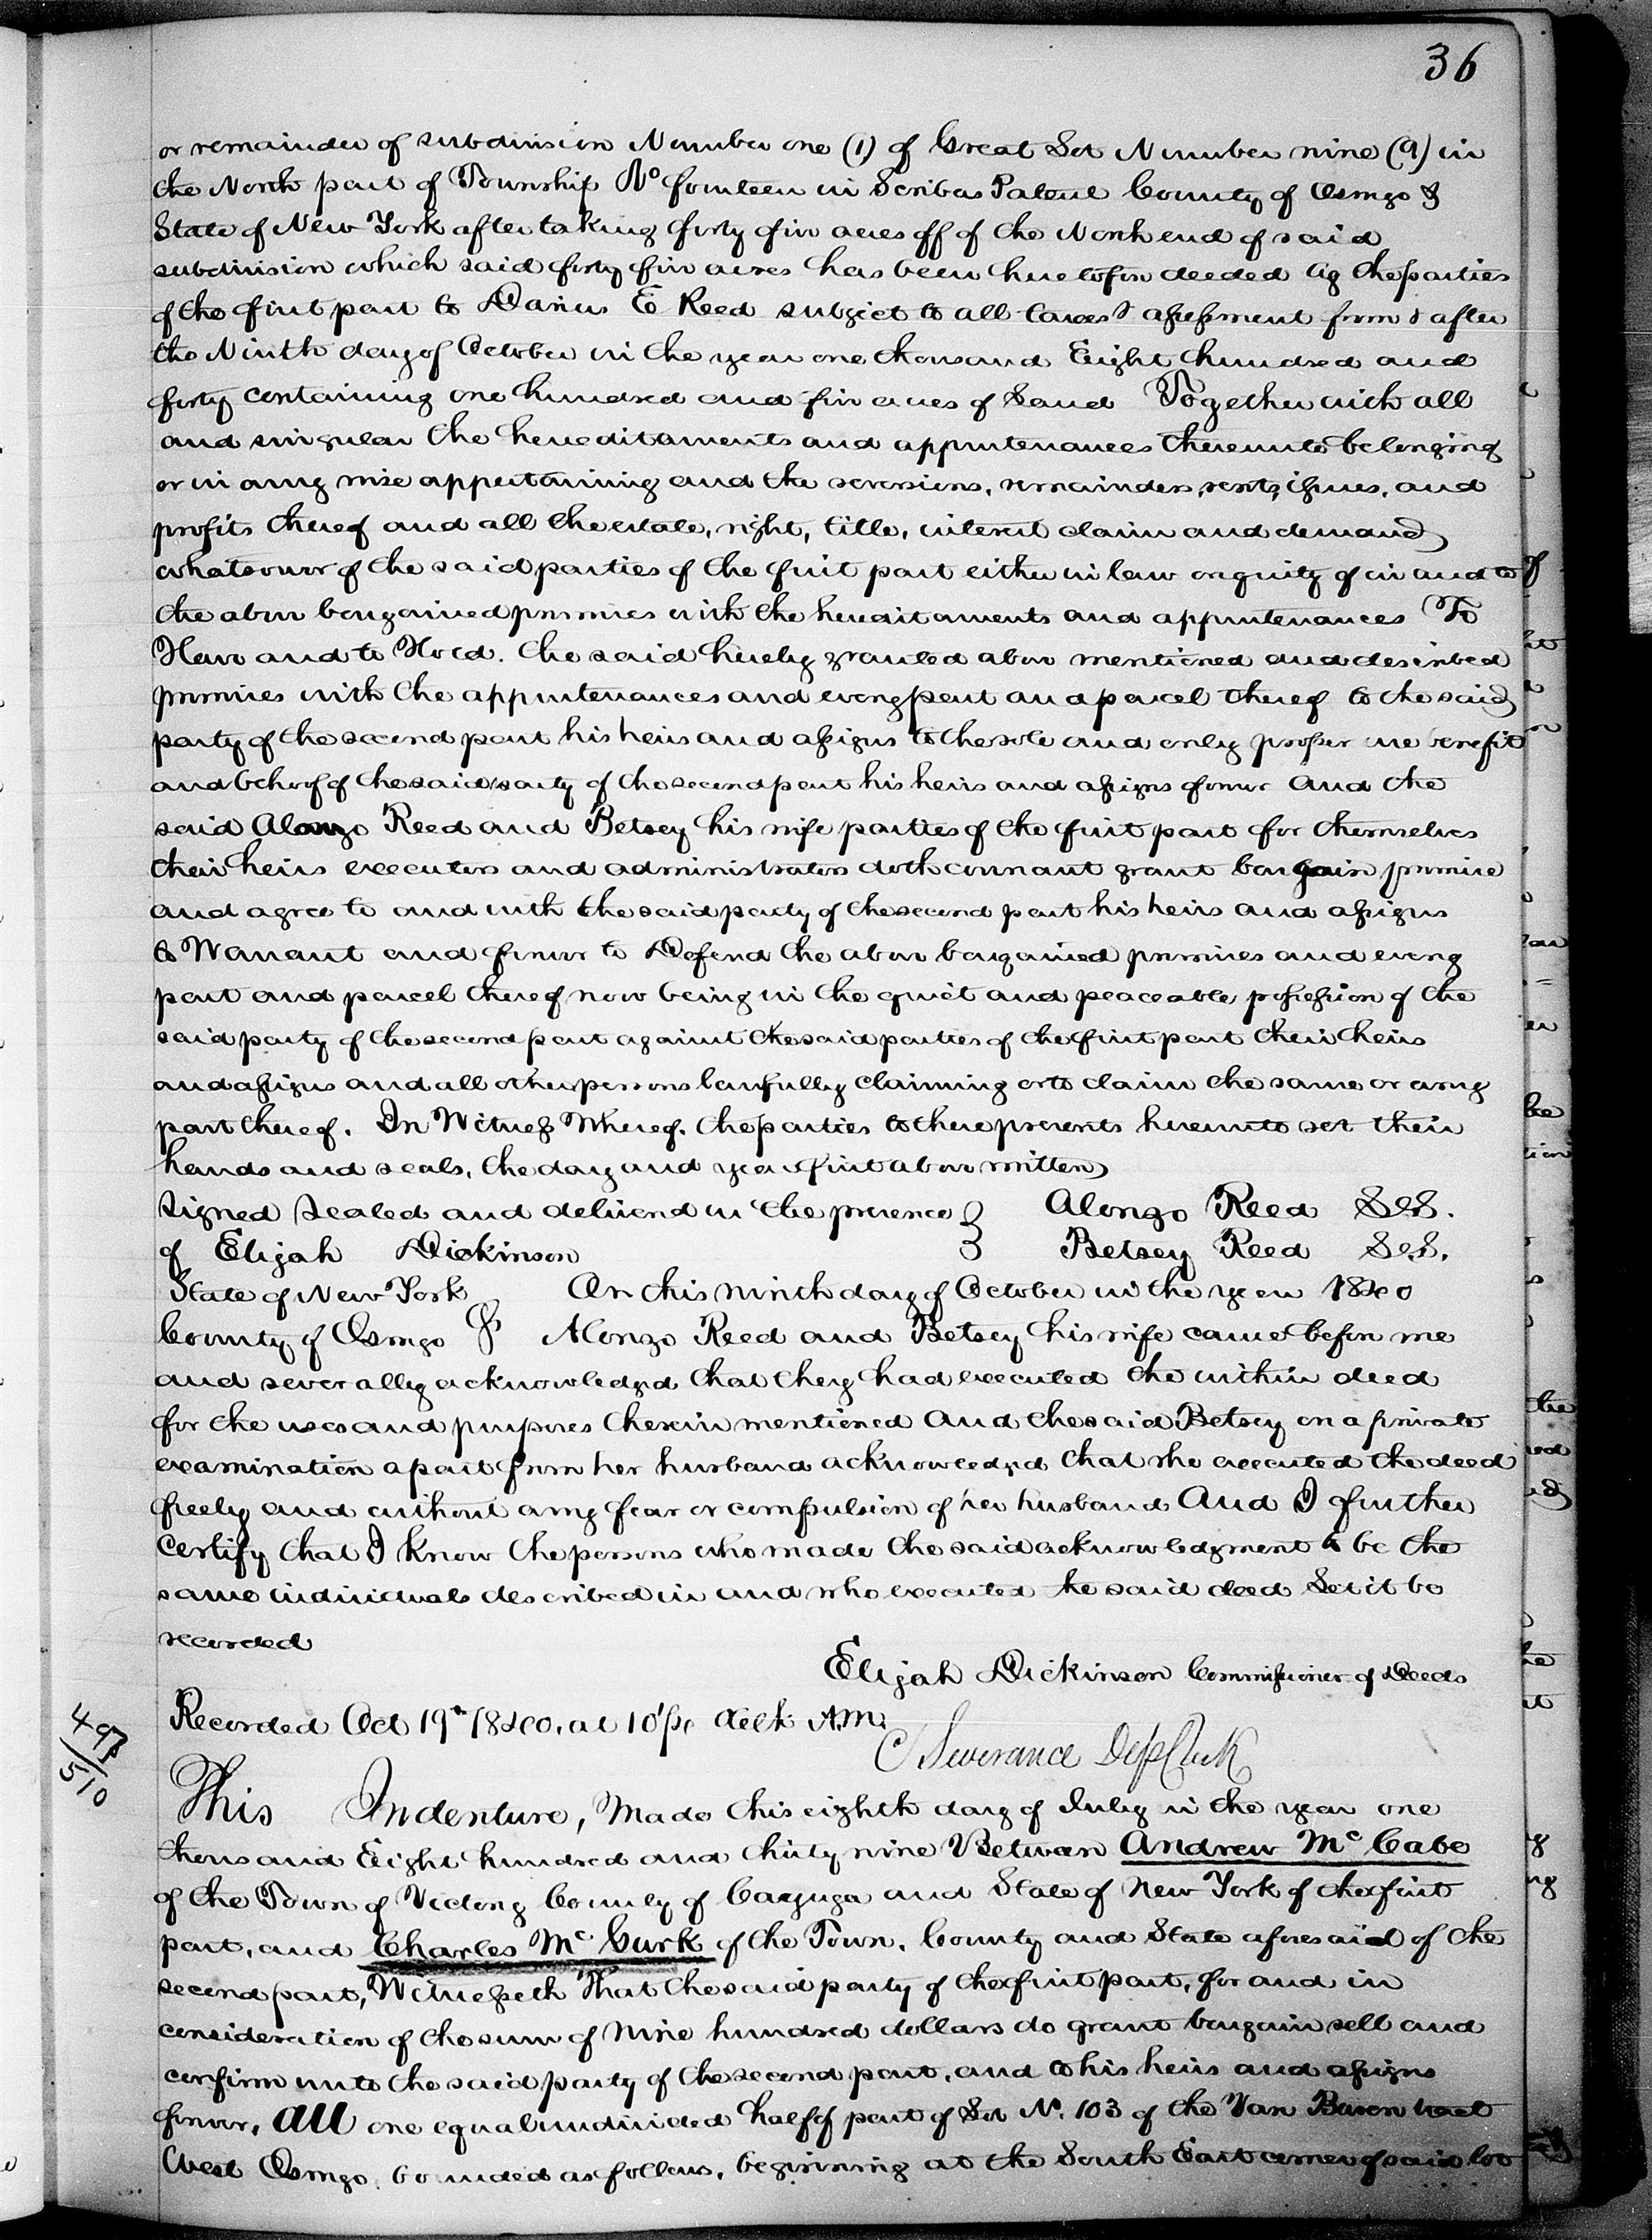 36
or remainder of subdivision Number one (1) of Great Lot Number nine (9) in
the North part of Township No fourteen in Scribas Patent County of Oswego &
State of New York after taking forty five acres off of the North end of said
subdivision which said forty five acres has been heretofore deeded by the parties
of the first part to Darius E Reed subject to all taxes & assessment from & after
the Ninth day of October in the year one thousand Eight hundred and
forty containing one hundred and five acres of Land Together with all
and singular the hereditaments and appurtenances thereunto belonging
or in any wise appertaining and the reversions, remainders, rents, issues, and
profits thereof and all the estate, right, title, interest claim and demand
whatsoever of the said parties of the first part either in law or equity of in and to
the above bargained premises with the hereditaments and appurtenances To
Have and to Hold. the said hereby granted above mentioned and described
premises with the appurtenances and every part and parcel thereof to the said
party of the second part his heirs and assigns to the sole and only proper use benefit
and behoof of the said party of the second part his heirs and assigns forever And the
said Alonzo Reed and Betsey his wife parties of the first part for themselves
their heirs executors and administrators doth covenant grant bargain promise
and agree to and with the said party of the second part his heirs and assigns
to Warrant and forever to Defend the above bargained premises and every
part and parcel thereof now being in the quiet and peaceable possession of the
said party of the second part against the said parties of the first part their heirs
and assigns and all other persons lawfully claiming or to claim the same or any
part thereof. In Witness Whereof. the parties to these presents hereunto set their
hands and seals, the day and year first above written
Signed Sealed and delivered in the presence } Alonzo Reed L.S.
of Elijah Dickinson } Betsey Reed L.S.
State of New York On this ninth day of October in the year 1840
County of Oswego ss Alonzo Reed and Betsey his wife came before me
and severally acknowledged that they had executed the within deed
for the uses and purposes therein mentioned And the said Betsey on a private
examination apart from her husband acknowledged that she executed the deed
freely and without any fear or compulsion of her husband And I further
certify that I know the persons who made the said acknowledgment to be the
same individuals described in and who executed the said deed Let it be
recorded
Elijah Dickinson Commissioner of Deeds
Recorded Oct 19th 1840. at 10 Clk A.M.
Severance Dep Clerk
497
510
This Indenture, Made this eighth day of July in the year one
thousand Eight hundred and thirty nine Between Andrew Mc Cabe
of the Town of Victory County of Cayuga and State of New York of the first
part, and Charles Mc Gurk of the Town, County and State aforesaid of the
second part, Witnesseth That the said party of the first part, for and in
consideration of the sum of Nine hundred dollars do grant bargain sell and
confirm unto the said party of the second part, and to his heirs and assigns
forever, All one equal undivided half of part of Lot No. 103 of the Van Buren tract
West Oswego, bounded as follows, beginning at the South East corner of said lot